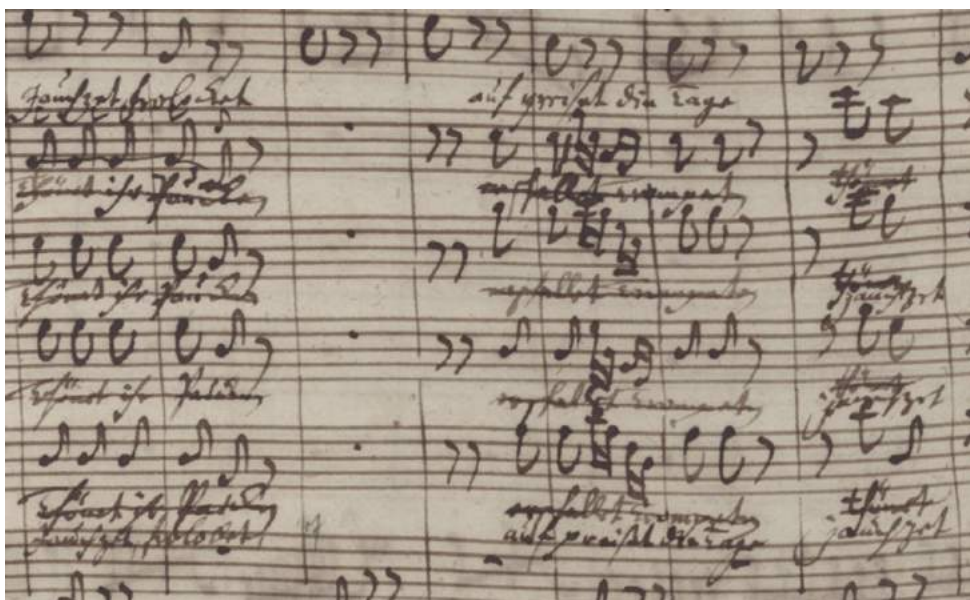 Jauchzet frolocket auf preißet die Tage
Thönet ihr Paucken erschallet trompeten thönet
Thönet ihr Paucken erschallet trompeten thönet
jauchzet
Thönet ihr Paucken erschallet trompeten thönet
jauchzet
Thönet ihr Paucken erschallet trompeten thönet
Jauchzet, frolocket auf preißt die Tage jauchzet